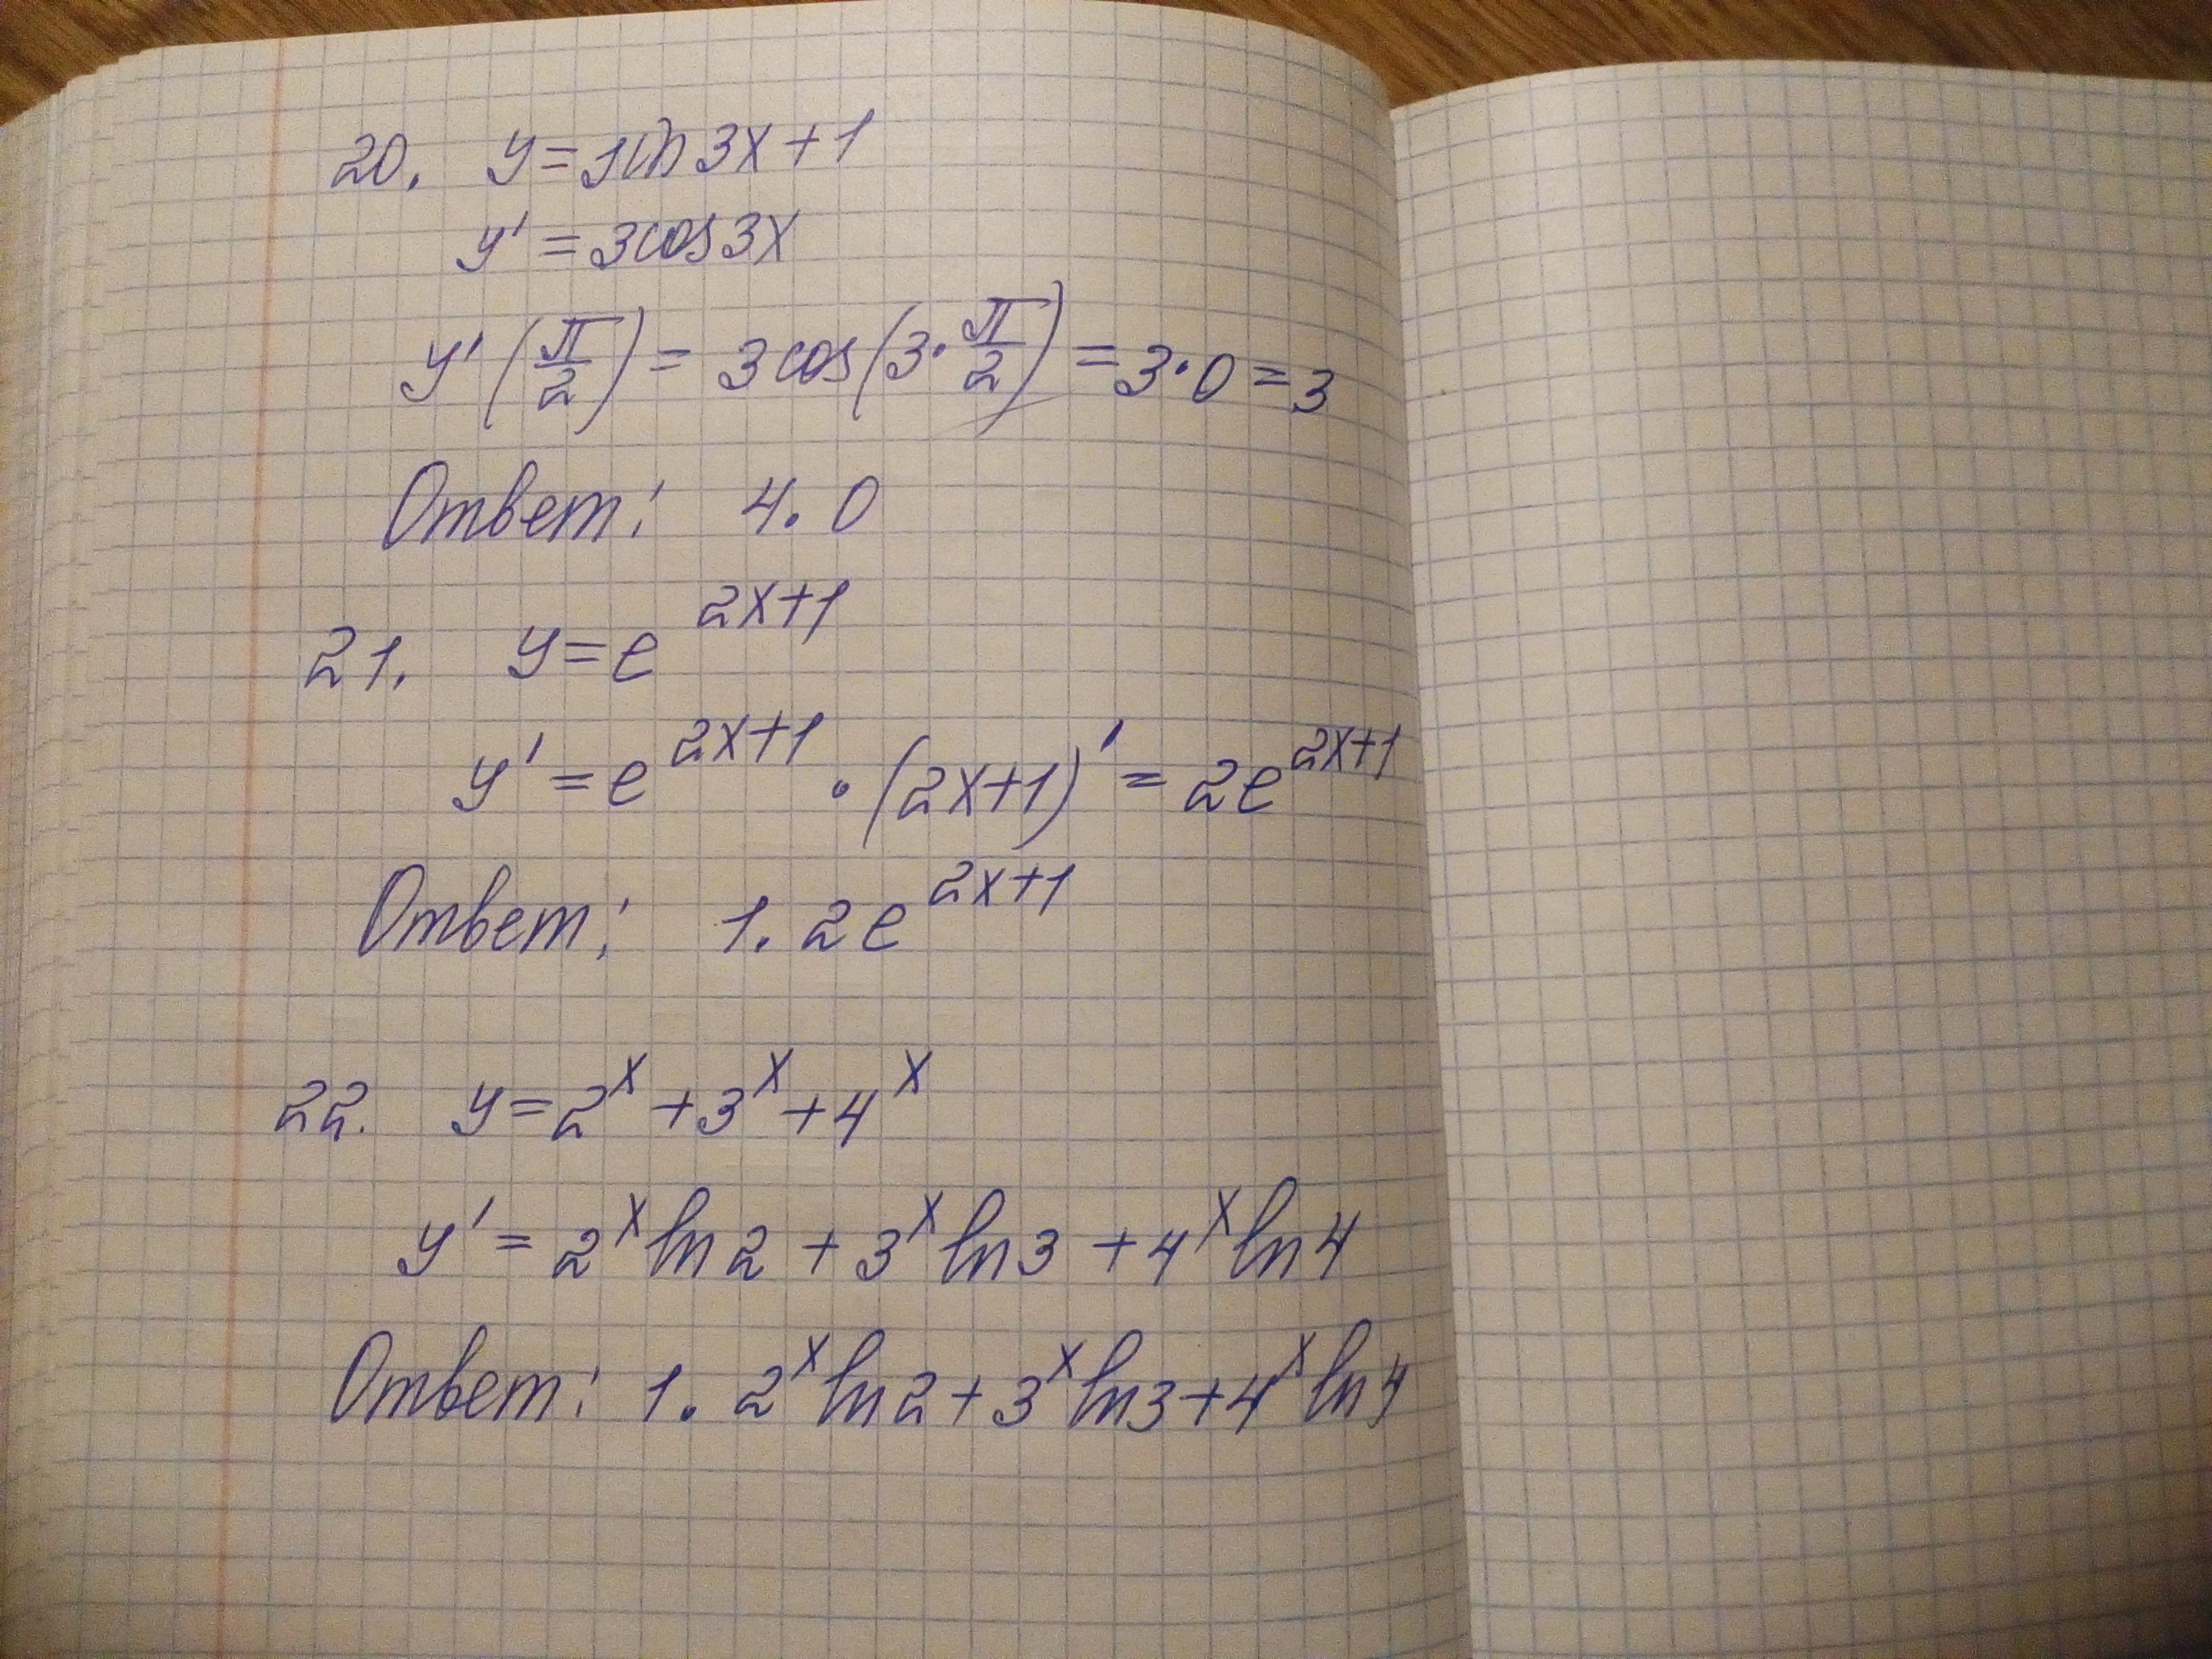 20. y=sin3x+1
y'=3cos3x
y'(π/2)=3cos(3·π/2)=3·0=3
Ответ: 4. 0
21. y=e^{2x+1}
y'=e^{2x+1}·(2x+1)'=2e^{2x+1}
Ответ: 1. 2e^{2x+1}
22. y=2^x+3^x+4^x
y'=2^x ln2+3^x ln3+4^x ln4
Ответ: 1. 2^x ln2+3^x ln3+4^x ln4